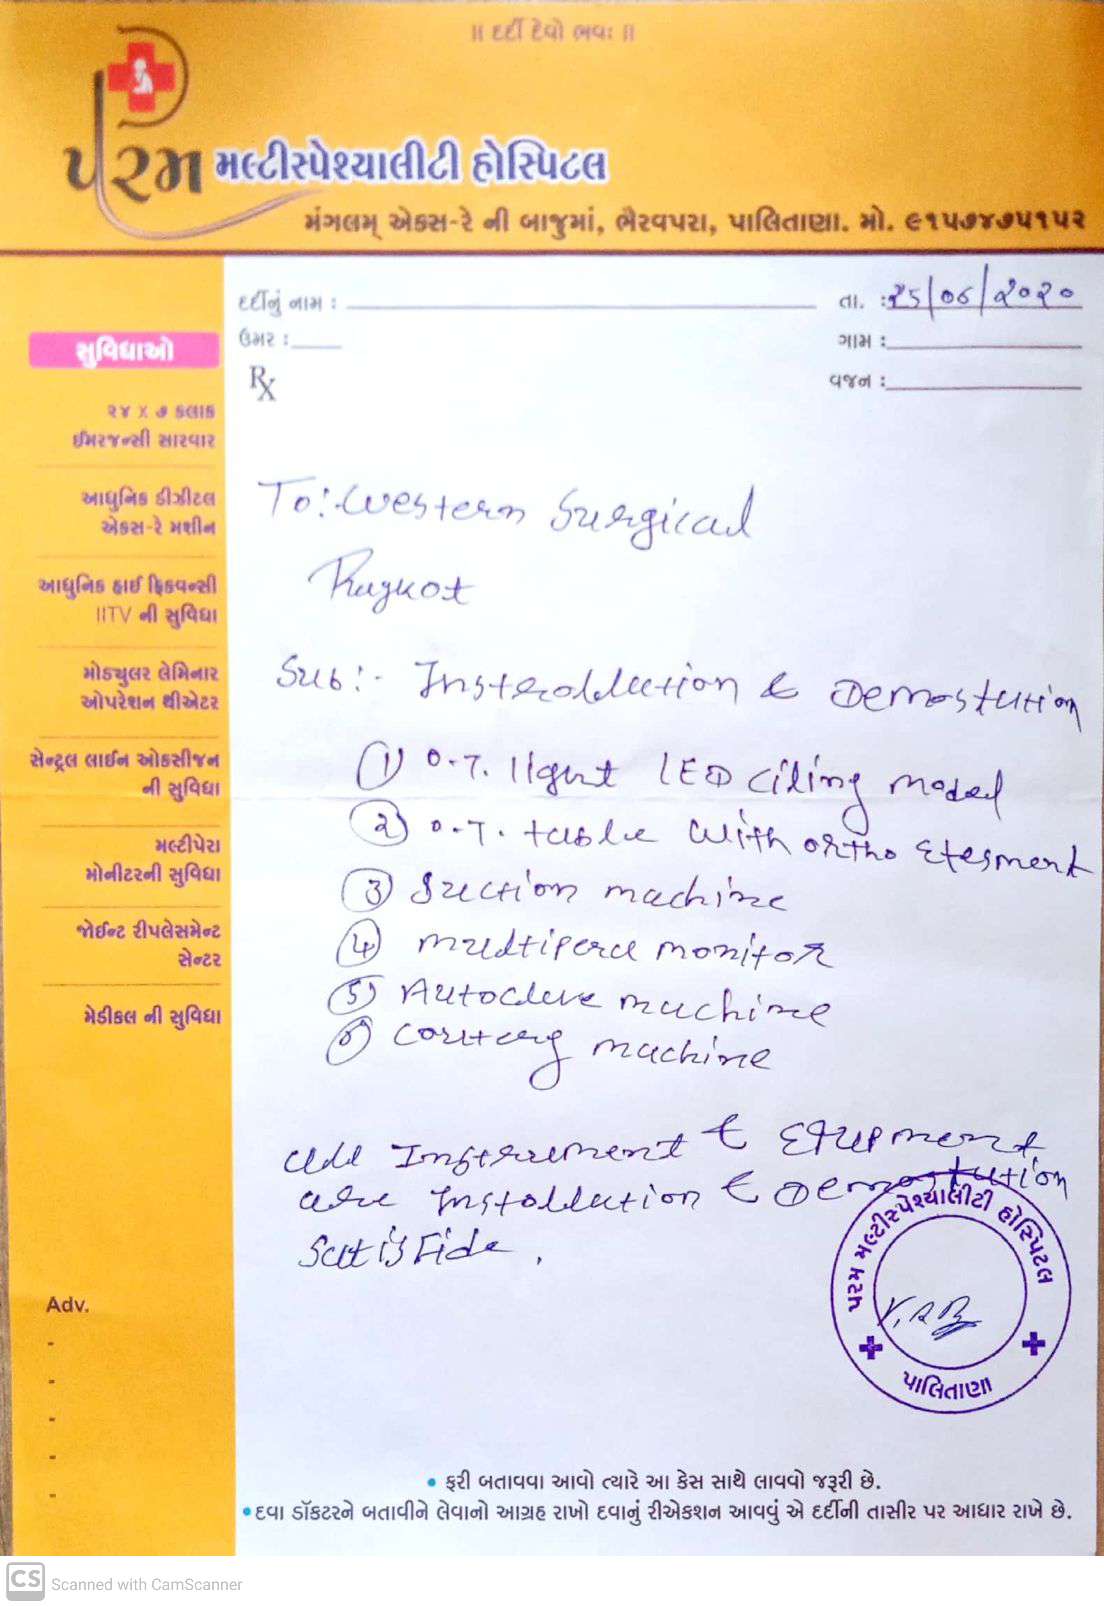 ॥ દર્દી દેવો ભવઃ ॥
પરમ મલ્ટીસ્પેશ્યાલીટી હોસ્પિટલ
મંગલમ્ એક્સ-રે ની બાજુમાં, ભૈરવપરા, પાલિતાણા. મો. ૯૧૫૭૪૭૫૧૫૨
દર્દીનું નામ :
તા. : ૨૫/૦૬/૨૦૨૦
ઉંમર :
ગામ :
Rx
વજન :
સુવિધાઓ
૨૪ X ૭ કલાક
ઈમરજન્સી સારવાર
આધુનિક ડીઝીટલ
એક્સ-રે મશીન
આધુનિક હાઈ ફ્રિકવન્સી
IITV ની સુવિધા
મોડ્યુલર લેમિનાર
ઓપરેશન થીએટર
સેન્ટ્રલ લાઈન ઓકસીજન
ની સુવિધા
મલ્ટીપેરા
મોનીટરની સુવિધા
જોઈન્ટ રીપ્લેસમેન્ટ
સેન્ટર
મેડીકલ ની સુવિધા
Adv.
-
-
-
-
-
To:- Western Surgical
Rajkot
Sub:- Insteallation & Demostation
1) O.T. light LED Ciling model
2) O.T. table with ortho Etesment
3) Suction machine
4) multipera monitor
5) Autoclave machine
6) Cortery machine
all Instrument & Etupment
are Installation & Demostation
Satisfide.
પરમ મલ્ટીસ્પેશ્યાલીટી હોસ્પિટલ
પાલિતાણા
• ફરી બતાવવા આવો ત્યારે આ કેસ સાથે લાવવો જરૂરી છે.
• દવા ડૉક્ટરને બતાવીને લેવાનો આગ્રહ રાખો દવાનું રીએકશન આવવું એ દર્દીની તાસીર પર આધાર રાખે છે.
CS Scanned with CamScanner